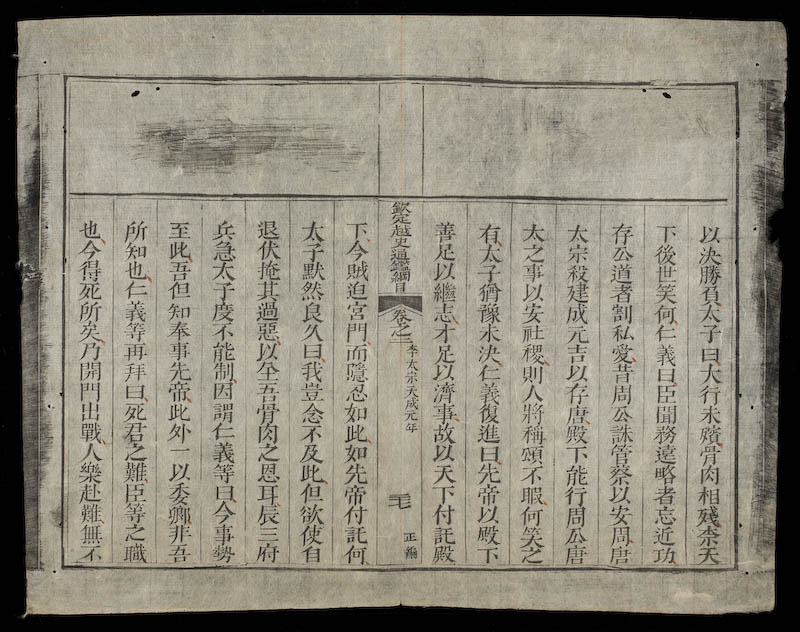 以決勝負太子曰大行未殯骨肉相殘柰天
下後世笑何仁義曰臣聞務遠略者忘近功
存公道者割私愛昔周公誅管蔡以安周唐
太宗殺建成元吉以存唐殿下能行周公唐
太之事以安社稷則人將稱頌不暇何笑之
有太子猶豫未決仁義復進曰先帝以殿下
善足以繼志才足以濟事故以天下付託殿
欽定越史通鑑綱目 卷之二 李太宗天成元年 毛 正編
下今賊迫宮門而隱忍如此如先帝付託何
太子默然良久曰我豈念不及此但欲使自
退伏掩其過惡以全吾骨肉之恩耳辰三府
兵急太子度不能制因謂仁義等曰今事勢
至此吾但知奉事先帝此外一以委卿非吾
所知也仁義等再拜曰死君之難臣等之職
也今得死所矣乃開門出戰人樂赴難無不